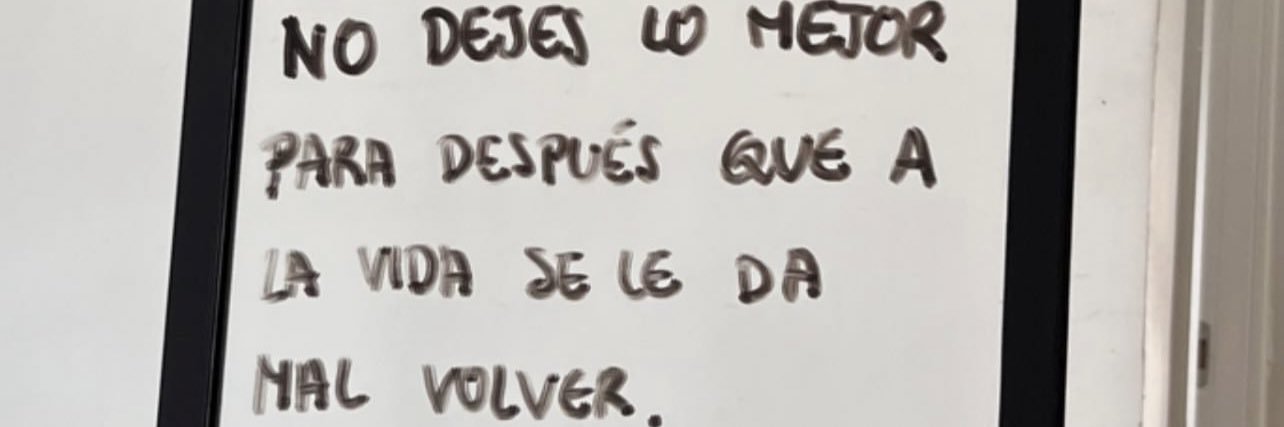 NO DEJES LO MEJOR
PARA DESPUÉS QUE A
LA VIDA SE LE DA
MAL VOLVER.